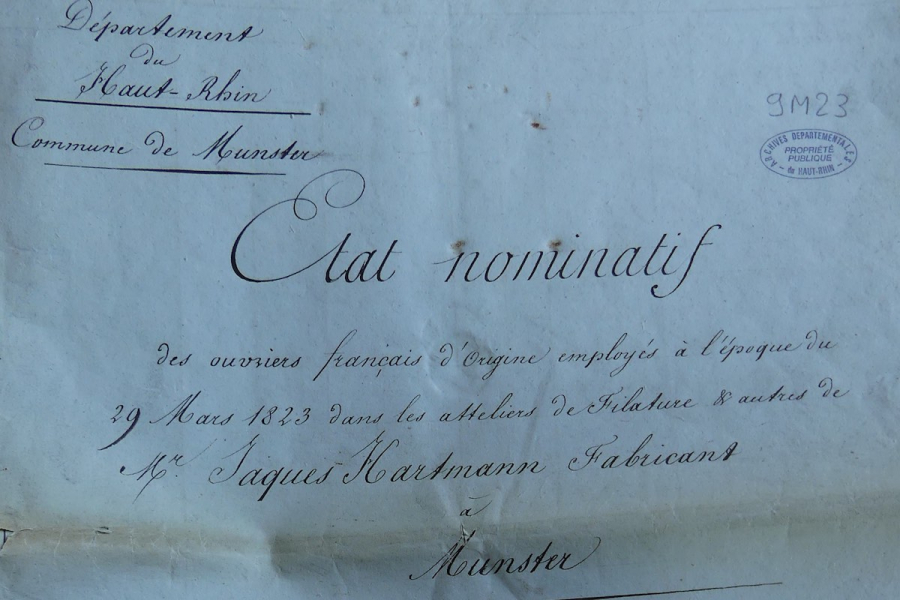 Département
du
Haut-Rhin
Commune de Munster
9M23
ARCHIVES DÉPARTEMENTALES
PROPRIÉTÉ
PUBLIQUE
du HAUT-RHIN
Etat nominatif
des ouvriers français d'Origine employés à l'époque du
29 Mars 1823 dans les atteliers de Filature & autres de
Mr. Jaques Hartmann Fabricant
à
Munster